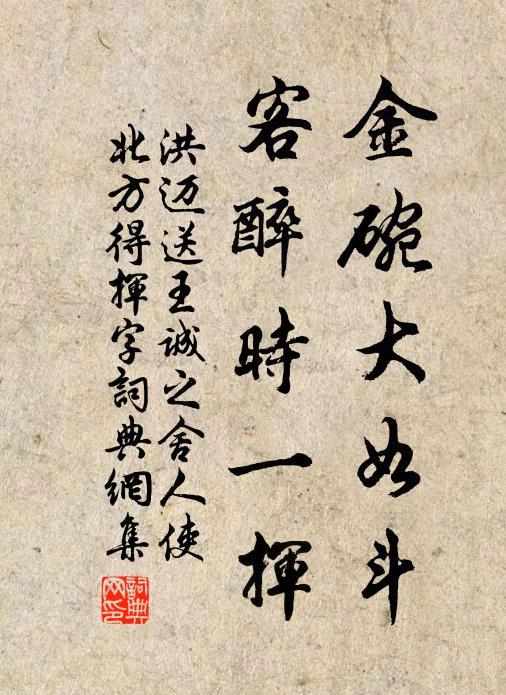 金碗大如斗
客醉時一揮
洪迈送王誠之舍人使
北方得揮字詞典網集
詞典
网印